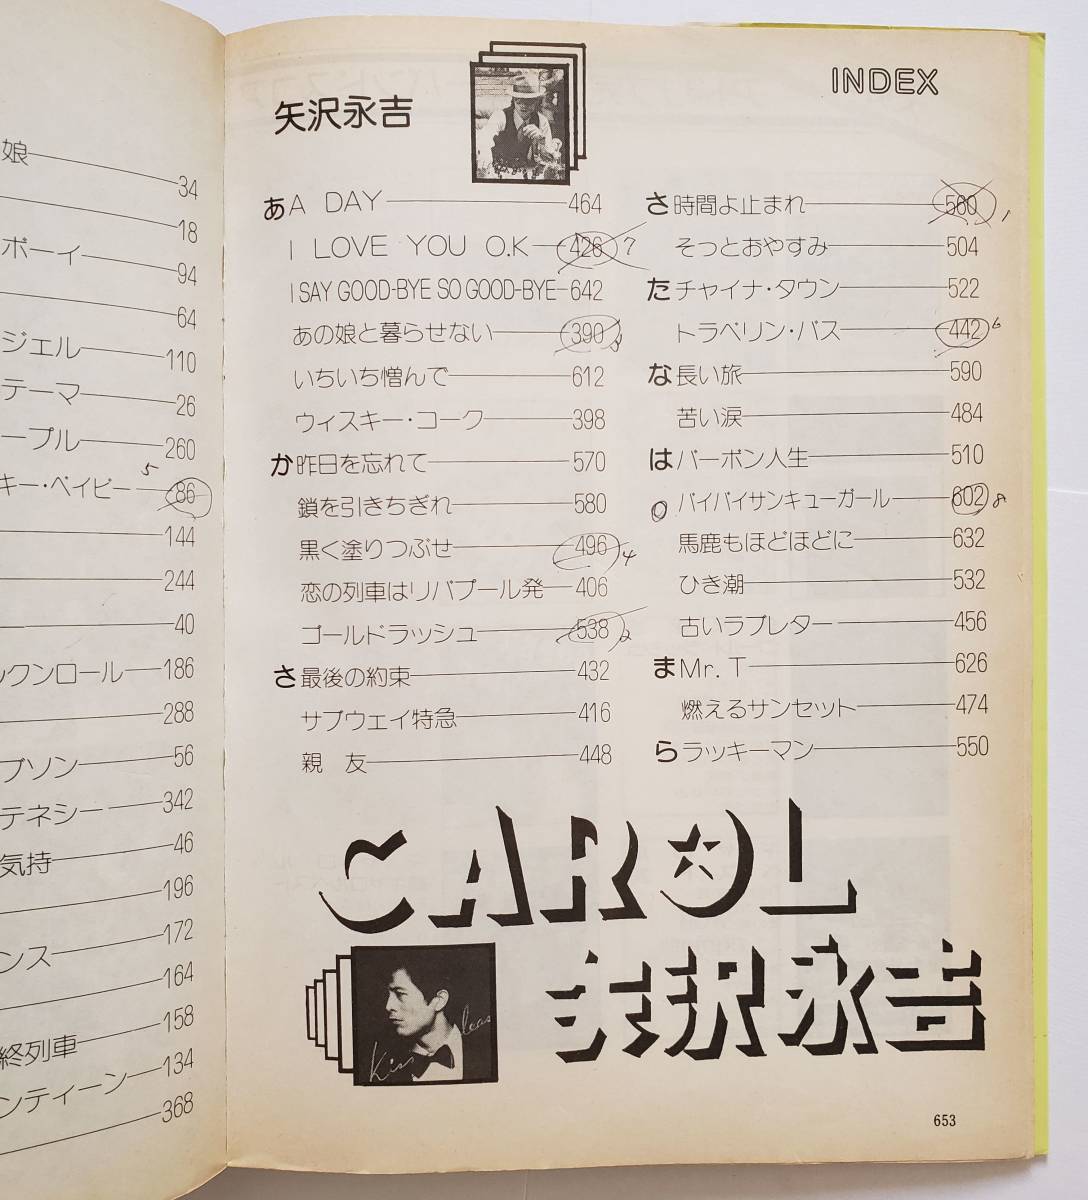 娘 34
18
ボーイ 94
64
ジェル 110
テーマ 26
ープル 260
5
キー・ベイビー 86
144
244
40
ックンロール 186
288
ブソン 56
テネシー 342
気持 46
196
ンス 172
164
158
終列車
ンティーン 134
368
INDEX
矢沢永吉
あ A DAY 464
I LOVE YOU O.K 426 7
I SAY GOOD-BYE SO GOOD-BYE 642
あの娘と暮らせない 390 3
いちいち憎んで 612
ウィスキー・コーク 398
か 昨日を忘れて 570
鎖を引きちぎれ 580
黒く塗りつぶせ 496 4
恋の列車はリバプール発 406
ゴールドラッシュ 538 2
さ 最後の約束 432
サブウェイ特急 416
親友 448
さ 時間よ止まれ 560 1
そっとおやすみ 504
た チャイナ・タウン 522
トラベリン・バス 442 6
な 長い旅 590
苦い涙 484
は バーボン人生 510
バイバイサンキューガール 602 8
馬鹿もほどほどに 632
ひき潮 532
古いラブレター 456
ま Mr. T 626
燃えるサンセット 474
ら ラッキーマン 550
CAROL
矢沢永吉
Kiss
653